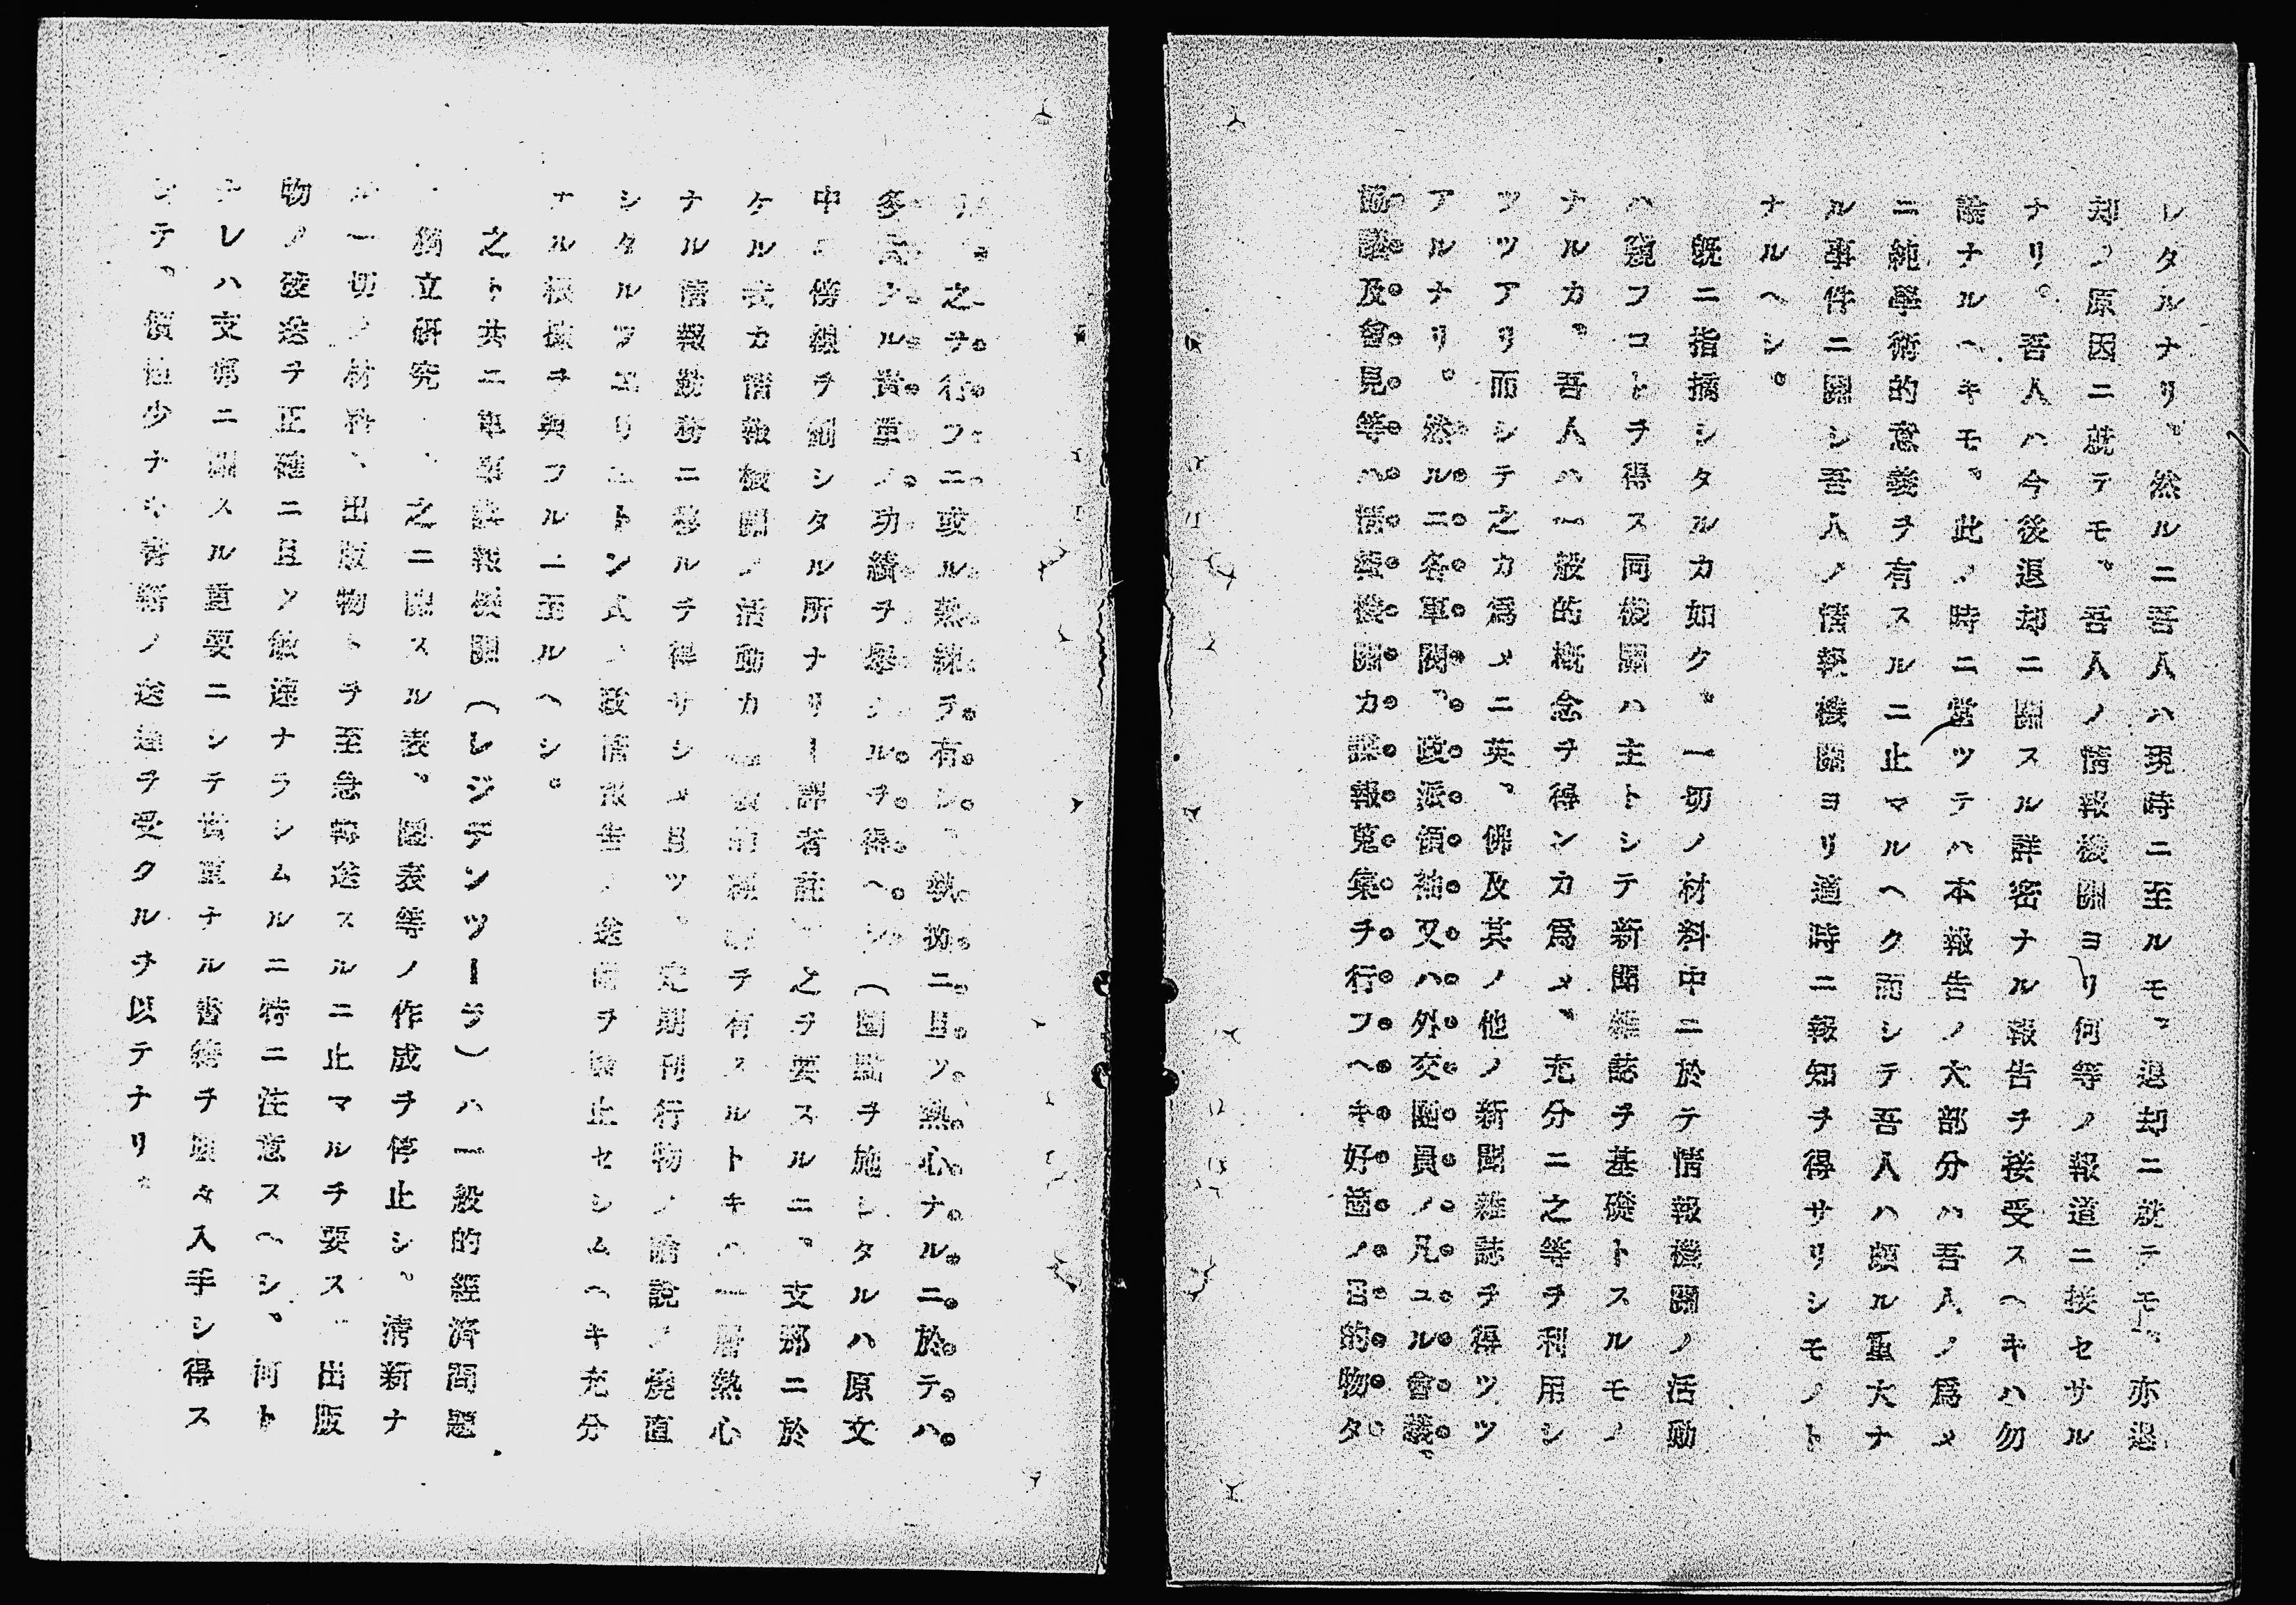 レタルナリ。然ルニ吾人ハ現時ニ至ルモ、退却ニ就テモ、亦退
却ノ原因ニ就テモ、吾人ノ情報機關ヨリ何等ノ報道ニ接セサル
ナリ。吾人ハ今後退却ニ關スル詳密ナル報告ヲ接受スヘキハ勿
論ナルヘキモ、此ノ時ニ當ツテハ本報告ノ大部分ハ吾人ノ爲メ
ニ純學術的意義ヲ有スルニ止マルヘク而シテ吾人ハ頗ル重大ナ
ル事件ニ關シ吾人ノ情報機關ヨリ適時ニ報知ヲ得サリシモノト
ナルヘシ。
既ニ指摘シタルカ如ク、一切ノ材料中ニ於テ情報機關ノ活動
ハ窺フコトヲ得ス同機關ハ主トシテ新聞雜誌ヲ基礎トスルモノ
ナルカ、吾人ハ一般的概念ヲ得ンカ爲メ、充分ニ之等ヲ利用シ
ツツアリ而シテ之カ爲メニ英、佛及其ノ他ノ新聞雜誌ヲ得ツツ
アルナリ。然ルニ各軍閥、政派領袖又ハ外交團員ノ凡ユル會議、
協議及會見等ハ情報機關カ諜報蒐集ヲ行フヘキ好箇ノ目的物タ
之ヲ行フニ或ル熟練ヲ有シ、執拗ニ且ツ熱心ナルニ於テハ
多大ナル貴重ノ功績ヲ擧シルヲ得ヘシ(圏點ヲ施シタルハ原文
中ニ傍線ヲ劃シタル所ナリー譯者註)之ヲ要スルニ、支那ニ於
ケル我カ情報機關ノ活動カ 有スルトキハ一層熱心
ナル情報勤務ニ移ルヲ得サシメ且ツ、定期刊行物ノ論説ノ燒直
シタルフエリエトン式ノ政情報告ノ送 ヲ 止セシムヘキ充分
ナル根據ヲ與フルニ至ルヘシ。
之ト共ニ軍事諜報機關(レジデンツーラ)ハ一般的經濟問題
獨立研究 之ニ關スル表、圖表等ノ作成ヲ停止シ、清新ナ
ル一切ノ材料、出版物トヲ至急轉送スルニ止マルヲ要ス 出版
物ノ發送ヲ正確ニ且ツ敏速ナラシムルニ特ニ注意スヘシ。何ト
ナレハ支那ニ關スル重要ニシテ貴重ナル書籍ヲ屢々入手シ得ス
シテ、價値少ナキ書籍ノ送達ヲ受クルヲ以テナリ。